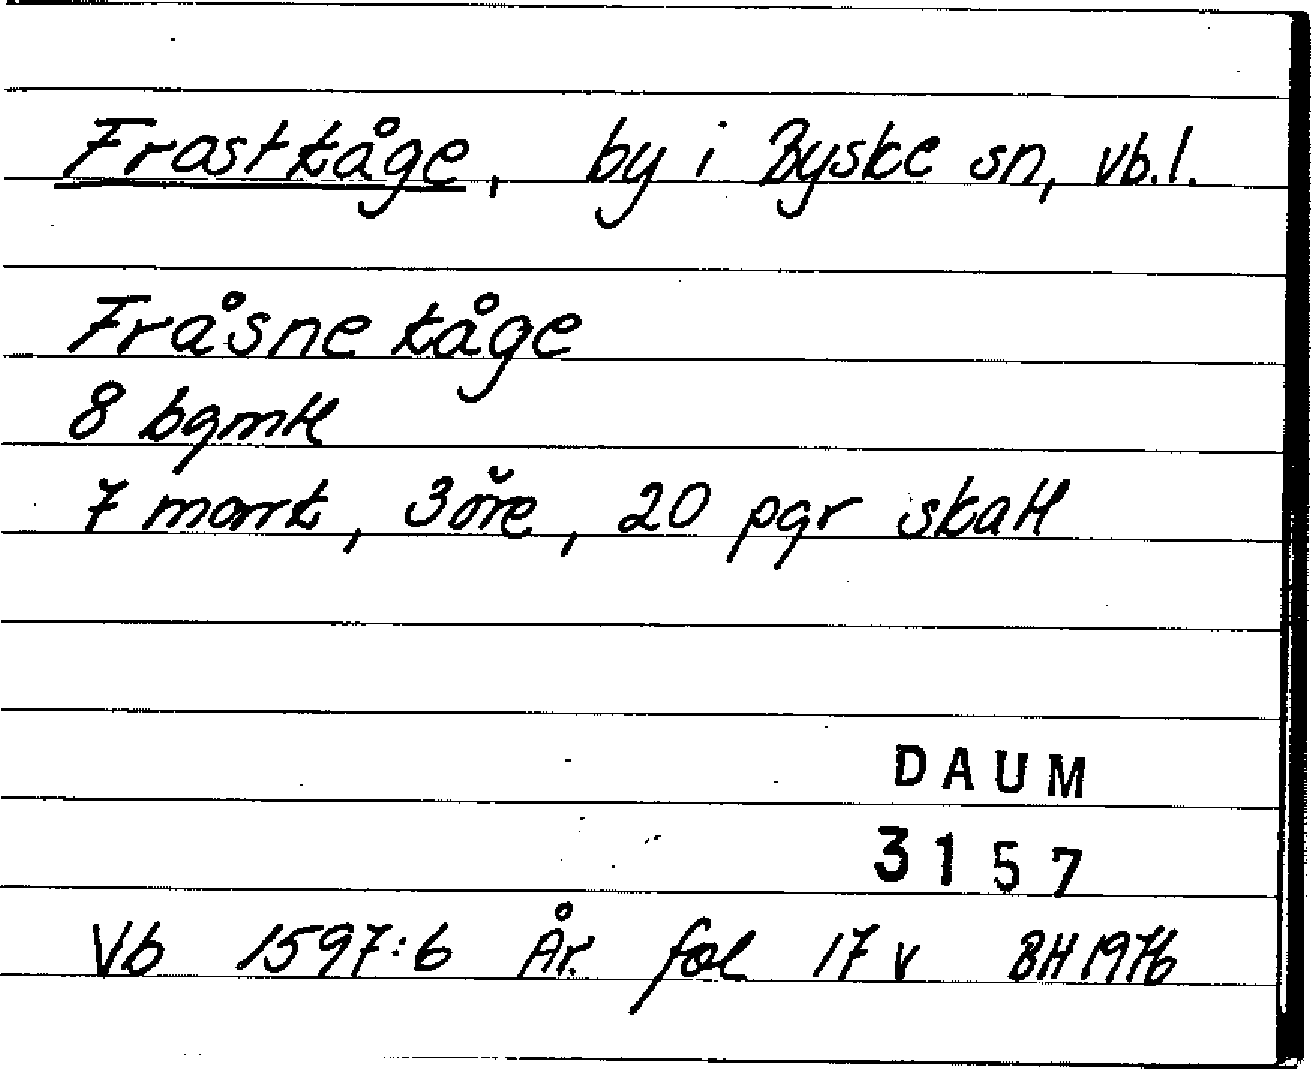 Frostkåge, by i Byske sn, vb.l.
Fråsne kåge
8 bgmtl
7 mark, 3 öre, 20 pgr skatt
DAUM
3157
Vb 1597:6 År. fol 17 v BH 1976